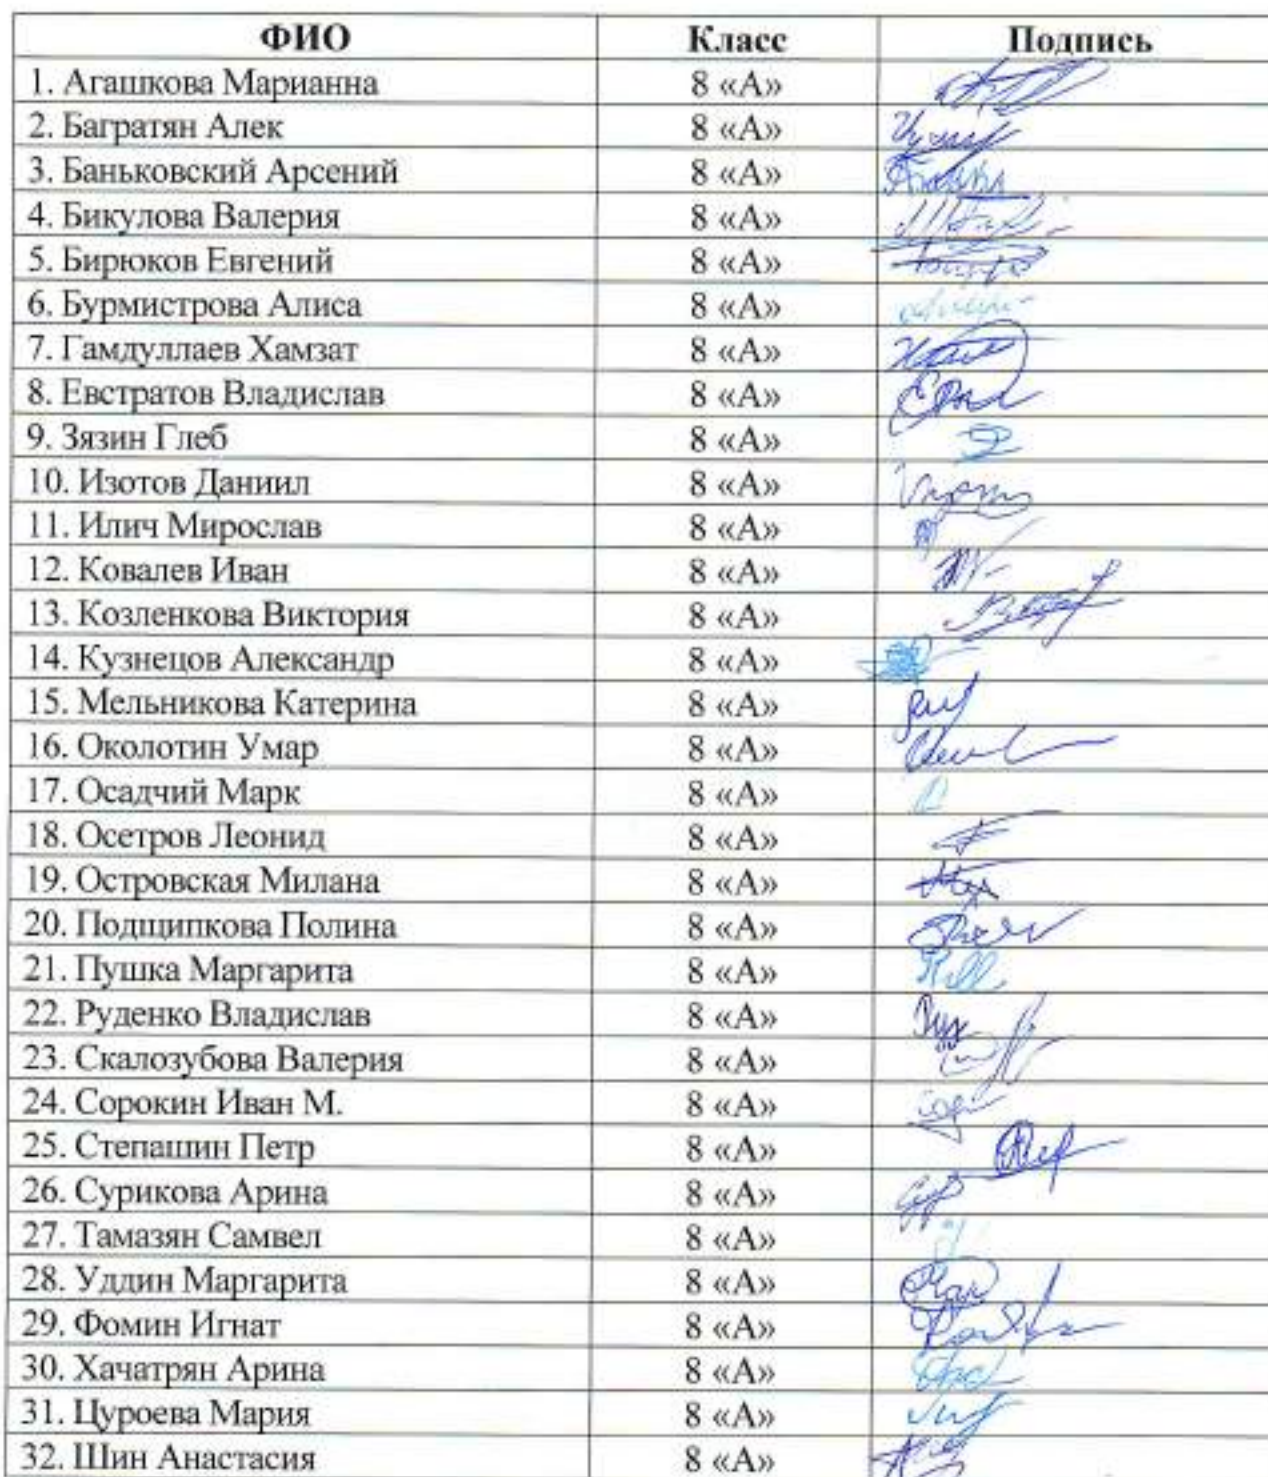 ФИО Класс Подпись
1. Агашкова Марианна 8 «А»
2. Багратян Алек 8 «А»
3. Баньковский Арсений 8 «А»
4. Бикулова Валерия 8 «А»
5. Бирюков Евгений 8 «А»
6. Бурмистрова Алиса 8 «А»
7. Гамдуллаев Хамзат 8 «А»
8. Евстратов Владислав 8 «А»
9. Зязин Глеб 8 «А»
10. Изотов Даниил 8 «А»
11. Илич Мирослав 8 «А»
12. Ковалев Иван 8 «А»
13. Козленкова Виктория 8 «А»
14. Кузнецов Александр 8 «А»
15. Мельникова Катерина 8 «А»
16. Околотин Умар 8 «А»
17. Осадчий Марк 8 «А»
18. Осетров Леонид 8 «А»
19. Островская Милана 8 «А»
20. Подщипкова Полина 8 «А»
21. Пушка Маргарита 8 «А»
22. Руденко Владислав 8 «А»
23. Скалозубова Валерия 8 «А»
24. Сорокин Иван М. 8 «А»
25. Степашин Петр 8 «А»
26. Сурикова Арина 8 «А»
27. Тамазян Самвел 8 «А»
28. Уддин Маргарита 8 «А»
29. Фомин Игнат 8 «А»
30. Хачатрян Арина 8 «А»
31. Цуроева Мария 8 «А»
32. Шин Анастасия 8 «А»